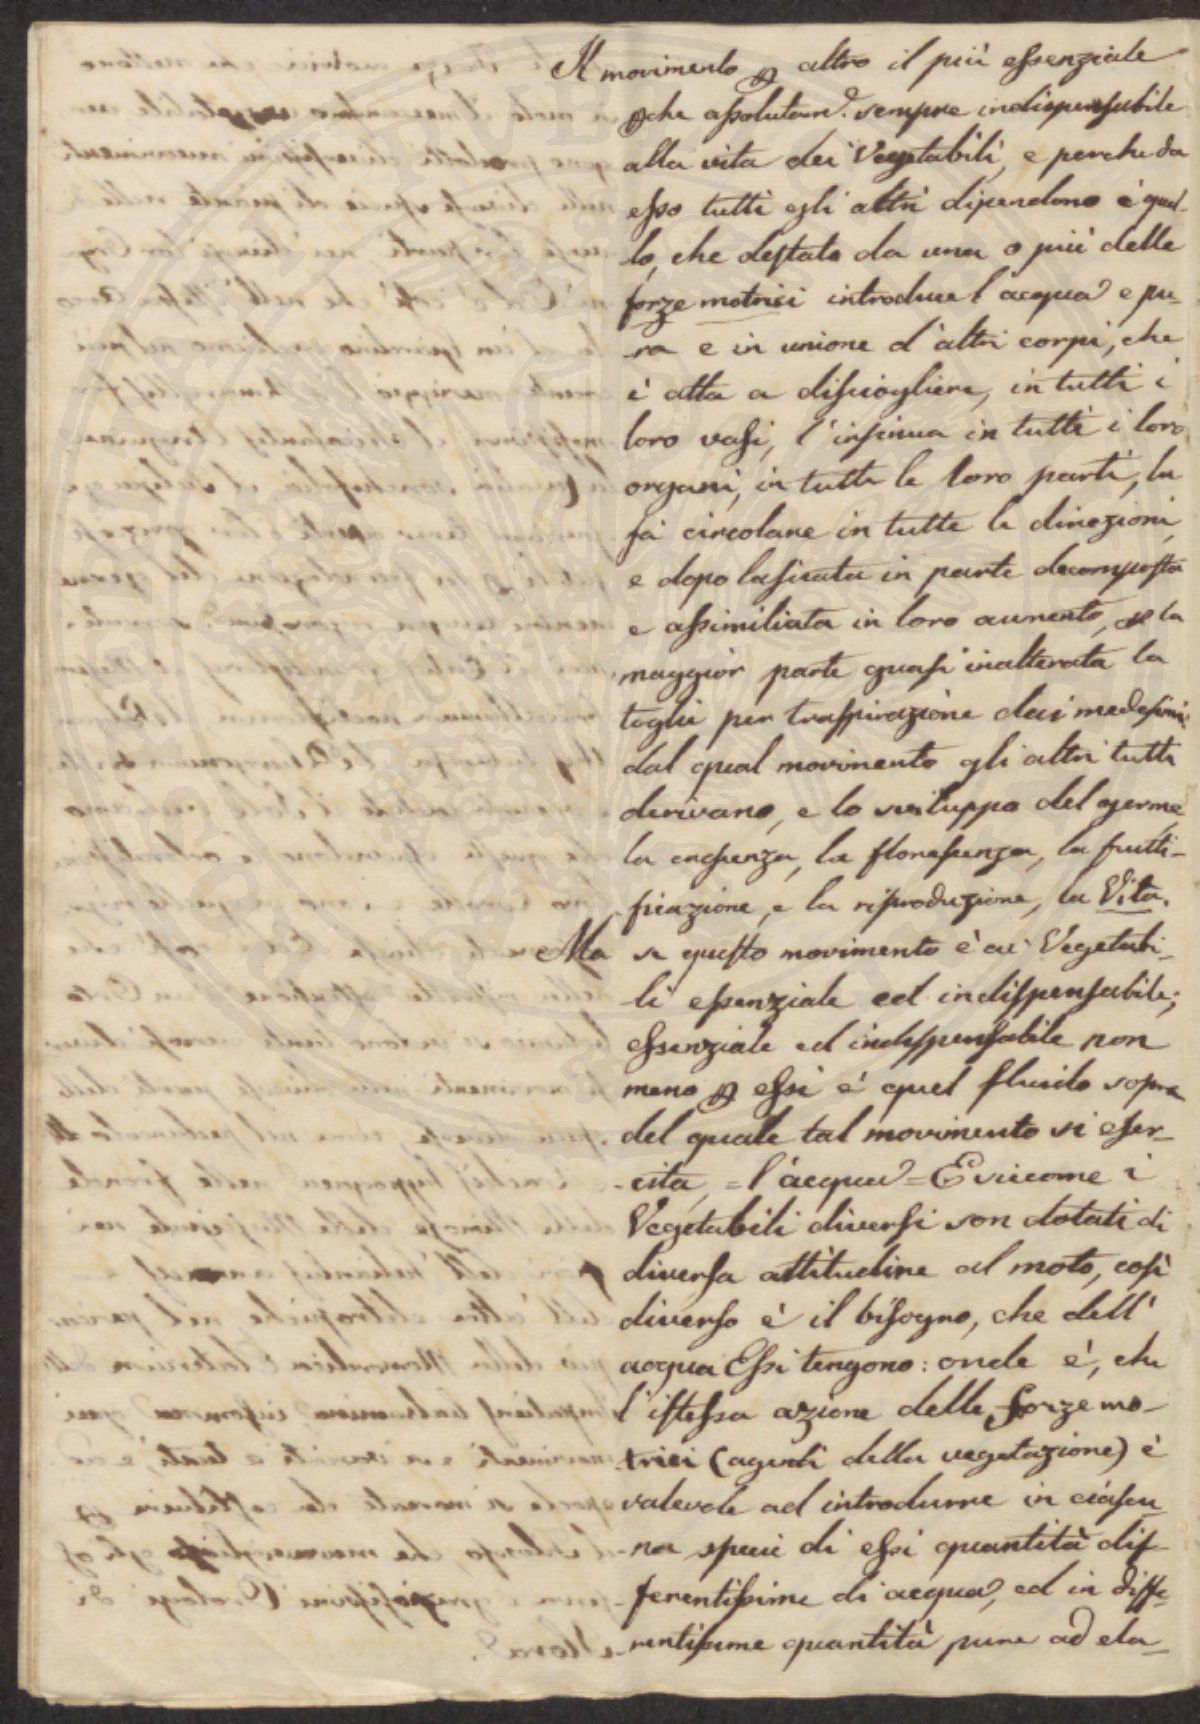 Il movimento p altro il più essenziale
pche assolutam.e sempre indispensabile
alla vita dei Vegetabili, e perche da
esso tutti gli altri dipendono è quel-
lo, che destato da una o più delle
forze motrici introduce l'acqua e pu-
ra e in unione d'altri corpi, che
è atta a disciogliere, in tutti i
loro vasi, l'insinua in tutti i loro
organi, in tutte le loro parti, la
fà circolare in tutte le direzioni,
e dopo lasciata in parte decomposta
e assimiliata in loro aumento, la
maggior parte quasi inalterata la
toglie per traspirazione dai medesimi:
dal qual movimento gli altri tutti
derivano, e lo sviluppo del germe,
la crescenza, la florescenza, la frutti-
ficazione, e la riproduzione, la Vita.
Ma se questo movimento è ai Vegetabi-
li essenziale ed indispensabile;
essenziale ed indispensabile non
meno p essi è quel fluido sopra
del quale tal movimento si eser-
cita, = l'acqua = E siccome i
Vegetabili diversi son dotati di
diversa attitudine al moto, così
diverso è il bisogno, che dell'
acqua Essi tengono: onde è, che
l'istessa azione delle forze mo-
trici (agenti della vegetazione) è
valevole ad introdurre in ciascu
na specie di essi quantità dif-
ferentissime di acqua, ed in diffe-
rentissime quantità pure ad ela-